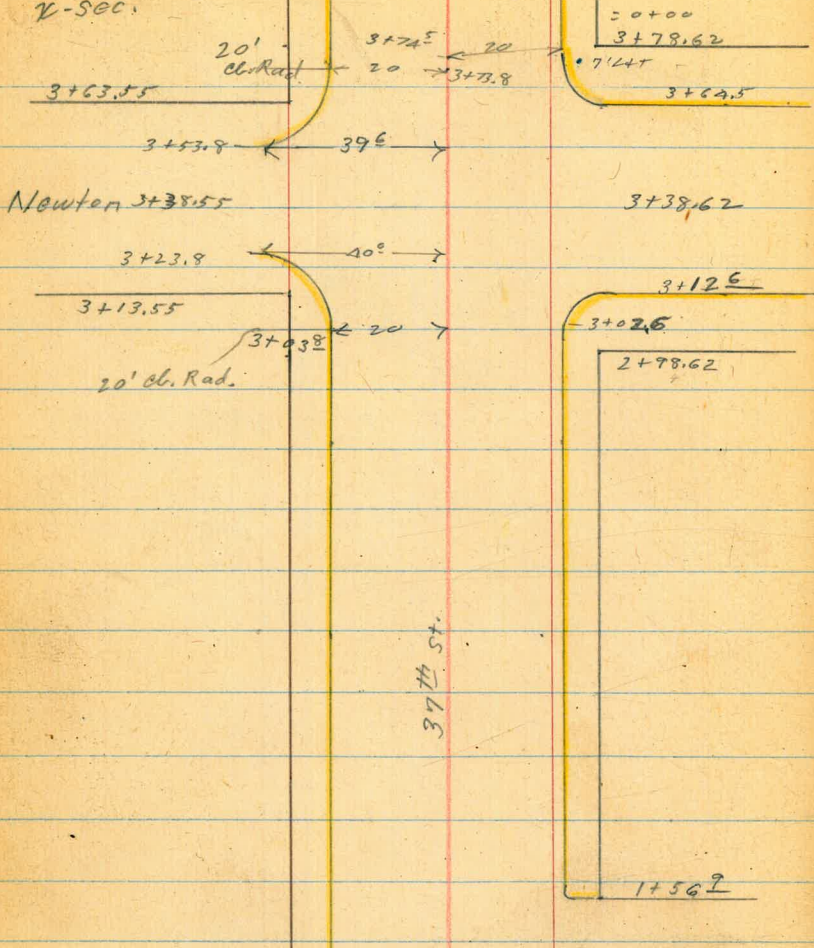 x-sec.
= 0+00
3+78.62
20'
cb. Rad
3+74⁵
20
20
3+73.8
7' Lt
3+63.55
3+64.5
3+53.8
39⁶
Newton 3+38.55
3+38.62
3+23.8
40⁰
3+13.55
3+12⁶
3+03⁸
20
3+02.6
20' cb. Rad.
2+98.62
37th St.
1+56⁹